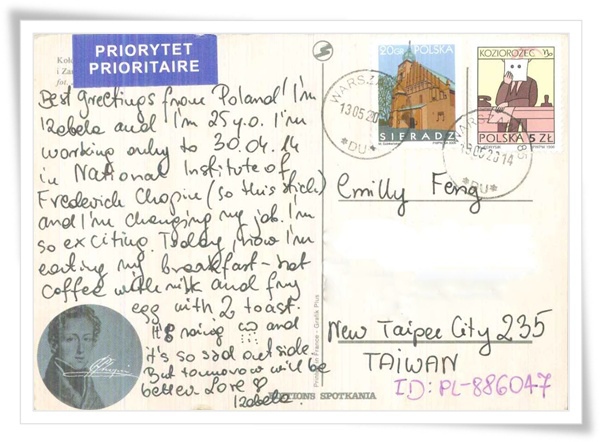 PRIORYTET
PRIORITAIRE
Best greetings from Poland! I'm
Izabela and I'm 25 y.o. I'm
working only to 30.04.14
in National Institute of
Frederick Chopin (so this stick.)
and I'm changing my job. I'm
so exciting. Today, now I'm
eating my breakfast - hot
coffee with milk and fry
egg with 2 toast.
It's raining and
it's so sad outside
But tomorrow will be
better. Love
Izabela.
EDITIONS SPOTKANIA
Printed in France - Grafik Plus
20 GR POLSKA
SIERADZ
KOZIOROŻEC
POLSKA 5 ZŁ
WARSZ
13.05.20
*DU*
WARSZAWA 85
13.05.2014
*DU*
Emilly Feng
New Taipei City 235
TAIWAN
ID: PL-886047